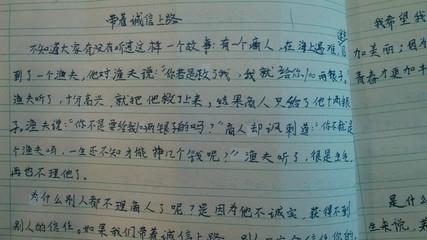 带着诚信上路
不知道大家有没有听过这样一个故事：有一个商人，在海上遇难，遇
到了一个渔夫，他对渔夫说："你若是救了我，我就给你100两银子。
渔夫听了，十分高兴，就把他救了上来，结果商人只给了他十两银
子。渔夫说："你不是要给我100两银子的吗？"商人却讽刺道："你不就是
个渔夫吗，一生还不知才能挣几个钱呢？"渔夫听了，很是生气，
再也不理他了。
为什么别人都不理商人了呢？是因为他不诚实，获得不到
别人的信任。如果我们带着诚信上路，别人
我希望我
加美丽；因为
青春才更加丰
是什么
生来说，